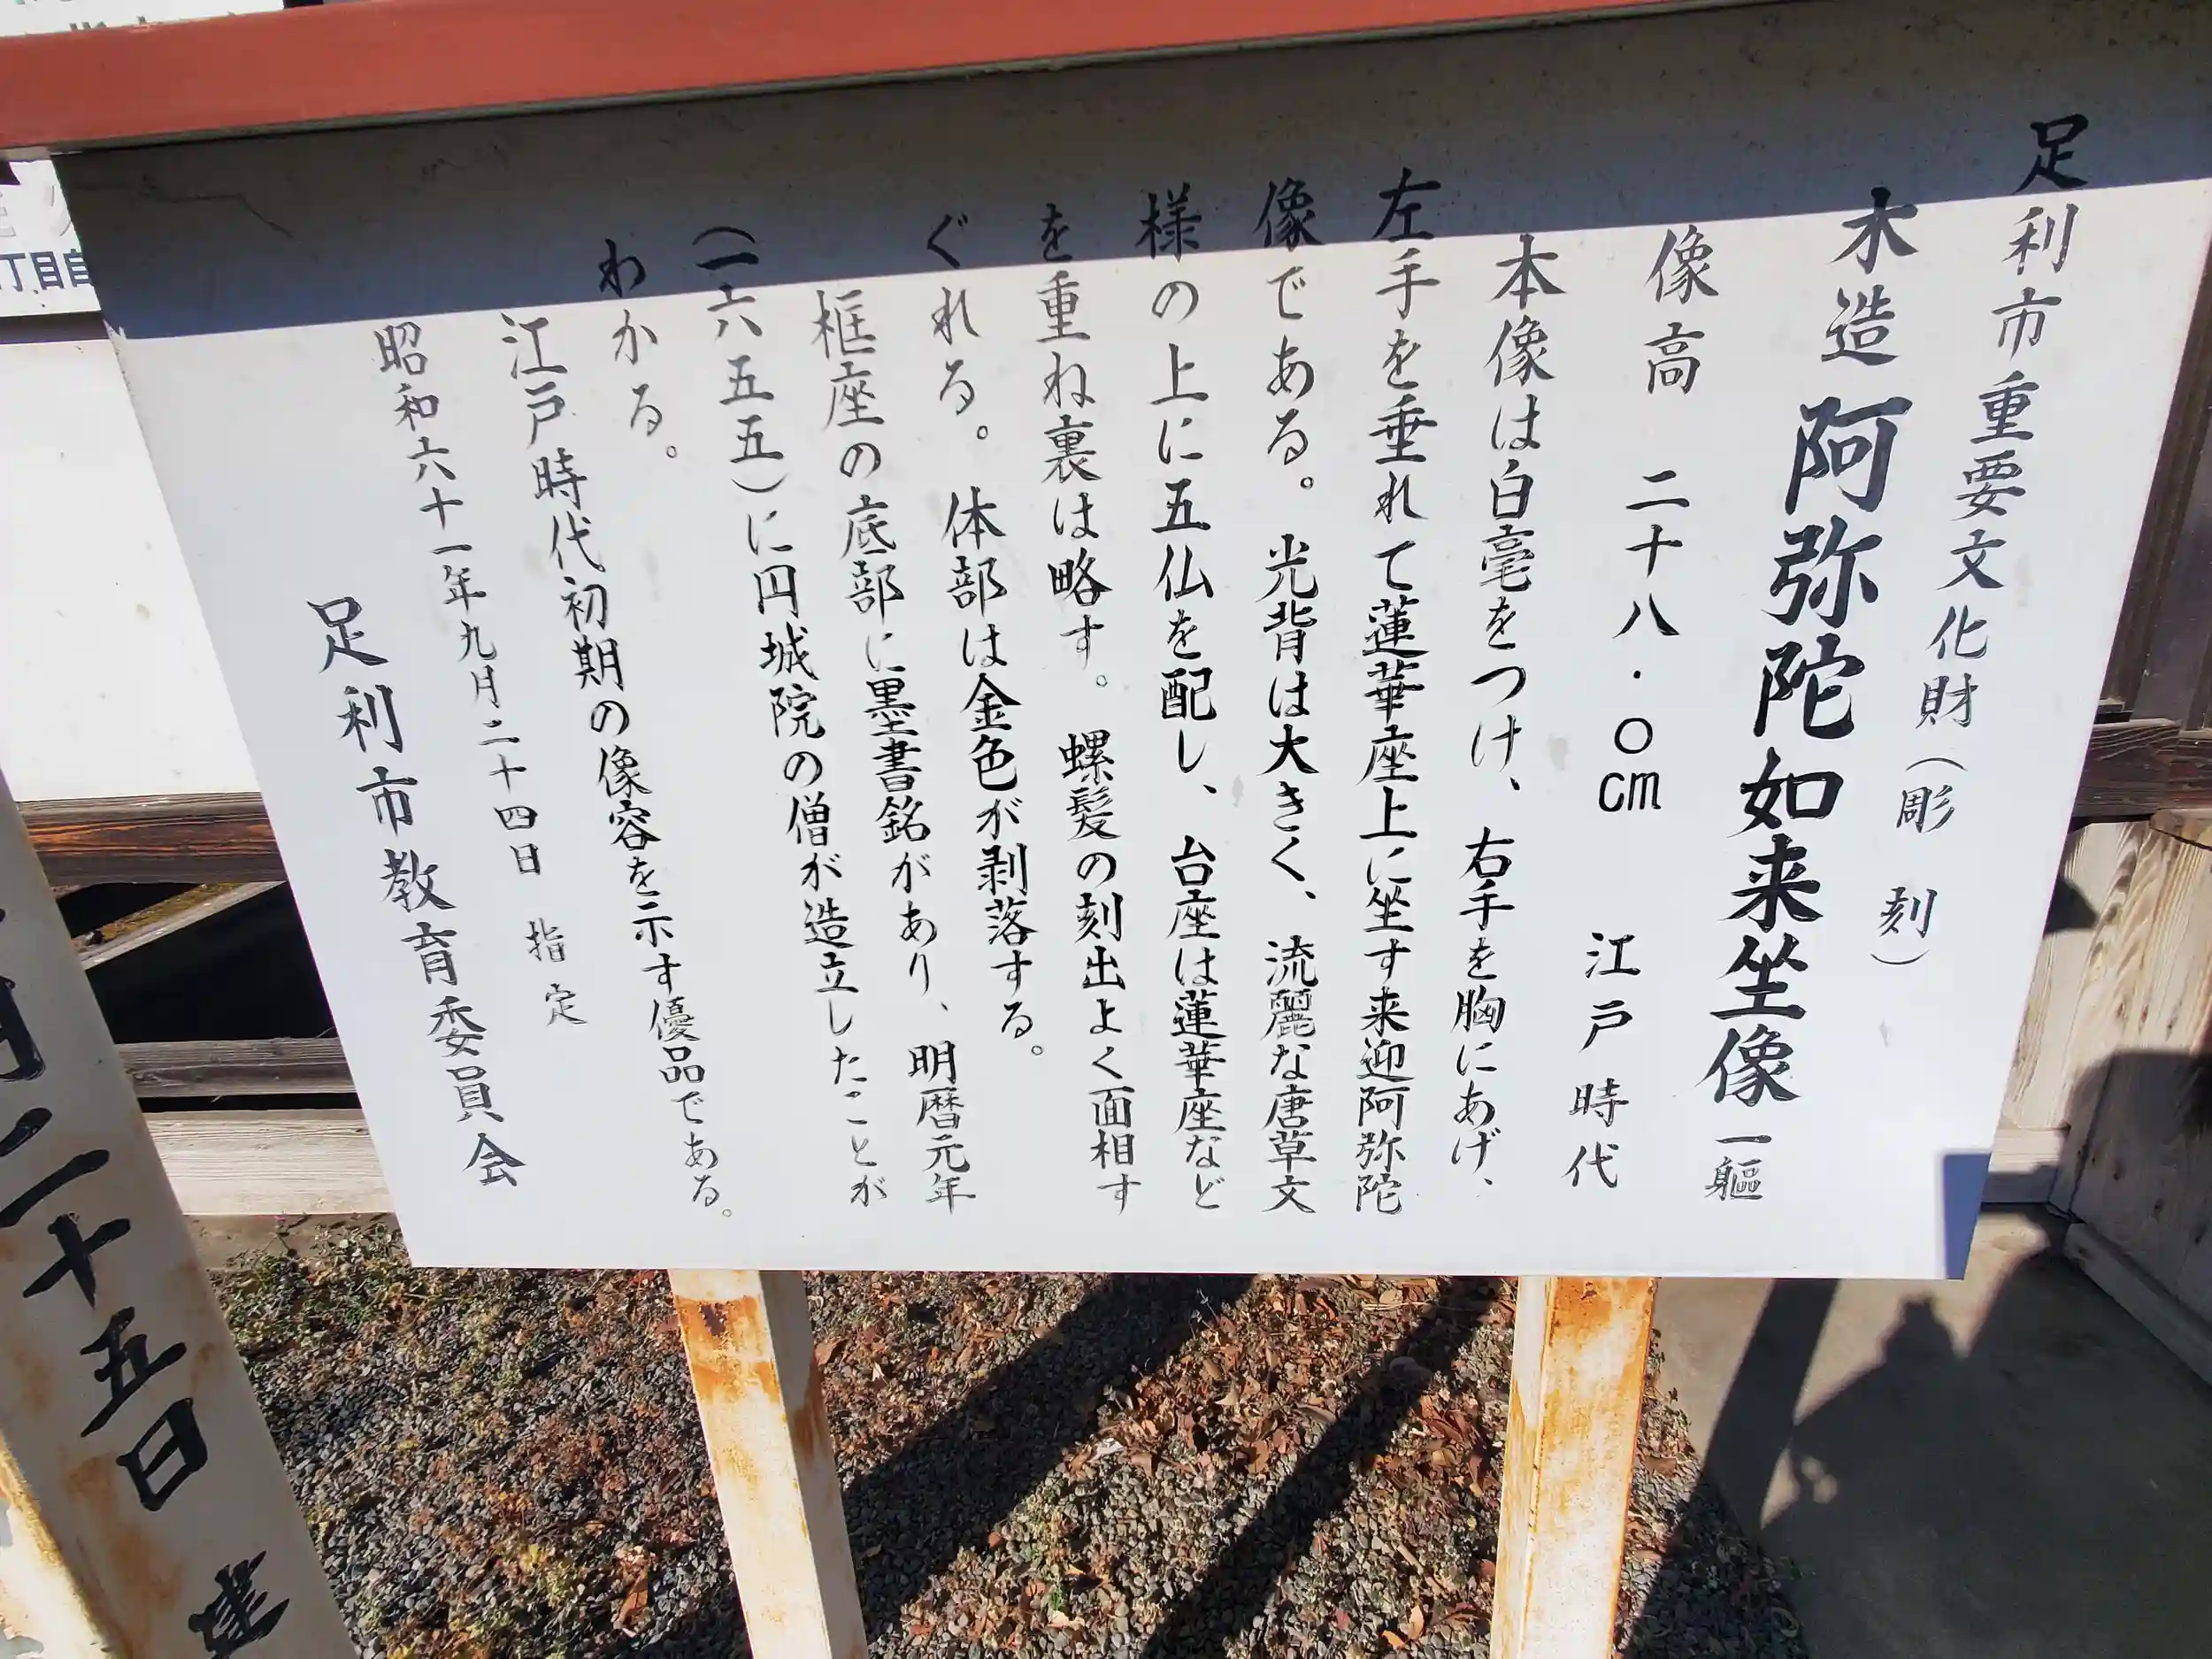 足利市重要文化財(彫刻)
木造 阿弥陀如来坐像 一軀
像高 二十八・〇cm 江戸時代
本像は白毫をつけ、右手を胸にあげ、
左手を垂れて蓮華座上に坐す来迎阿弥陀
像である。光背は大きく、流麗な唐草文
様の上に五仏を配し、台座は蓮華座など
を重ね裏は略す。螺髪の刻出よく面相す
ぐれる。体部は金色が剥落する。
框座の底部に墨書銘があり、明暦元年
(一六五五)に円城院の僧が造立したことが
わかる。
江戸時代初期の像容を示す優品である。
昭和六十一年九月二十四日 指定
足利市教育委員会
月二十五日 建
丁目自